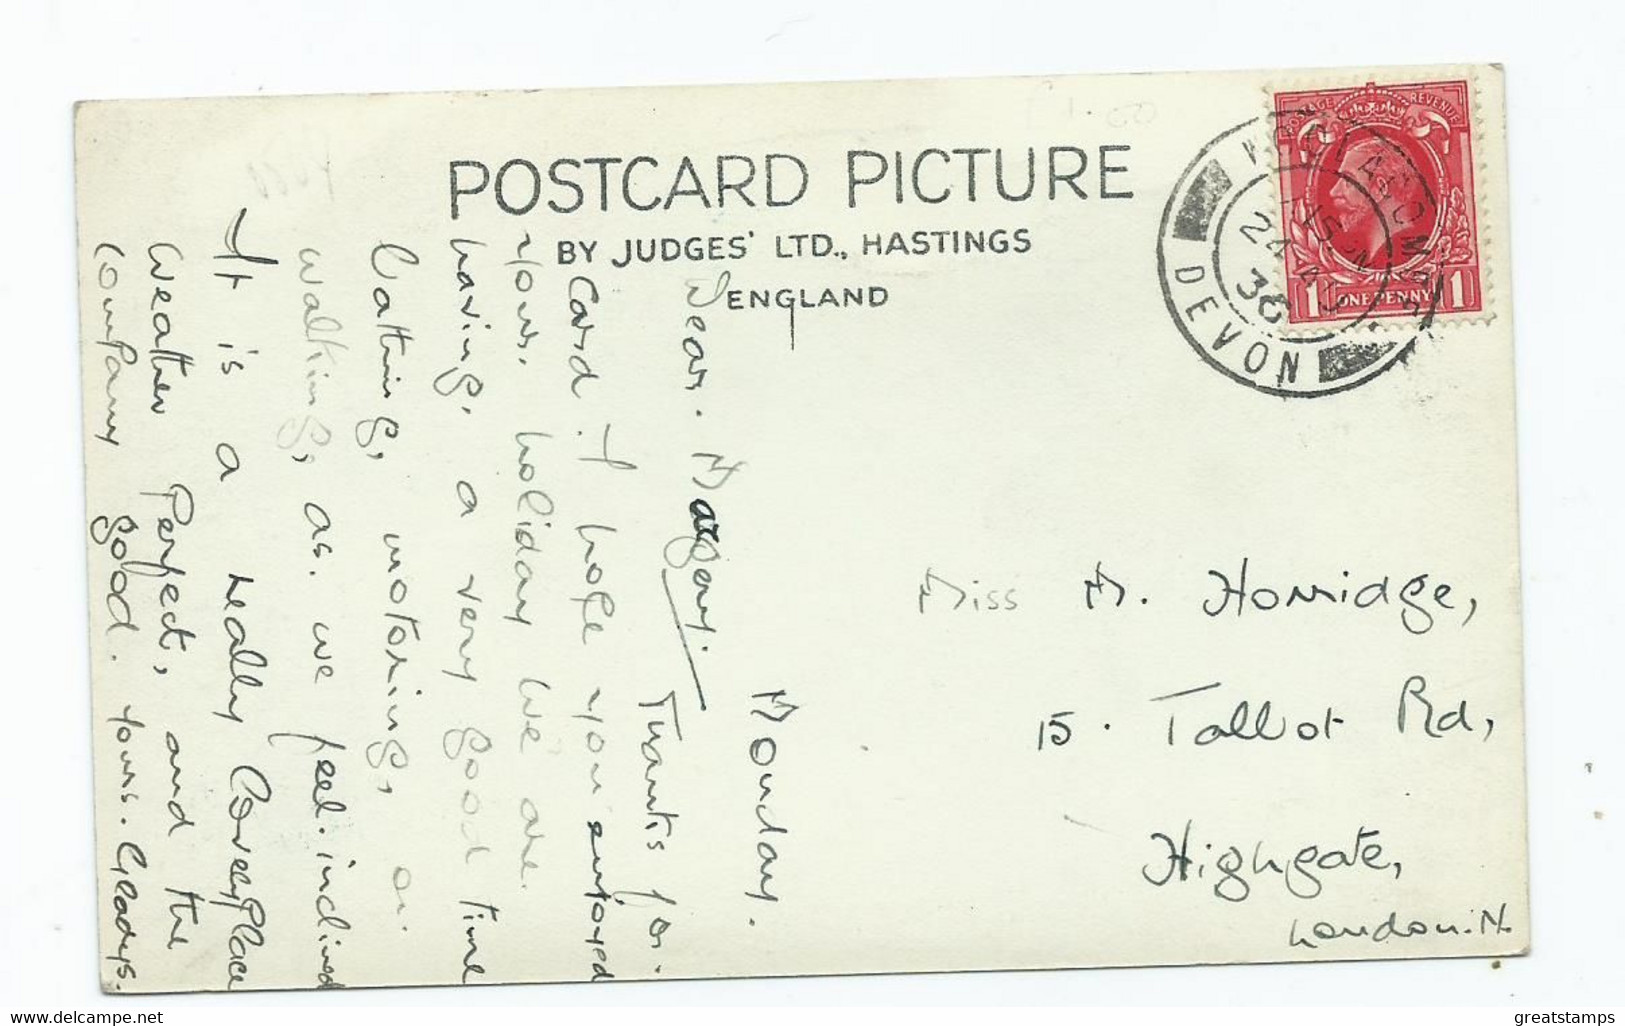 POSTCARD PICTURE
BY JUDGES' LTD., HASTINGS
ENGLAND
POSTAGE REVENUE
1 ONE PENNY 1
24 AU
36
DEVON
Monday.
Dear. Margery.
Thanks for
Card. I hope you enjoyed
your. holiday we are.
having. a very good time
bathing, motoring, or.
walking, as. we feel. inclined
It is a really lovely place
Weather Perfect, and the
company good. Yours. Gladys.
Miss M. Horridge,
15. Talbot Rd,
Highgate,
London. N.
greatstamps